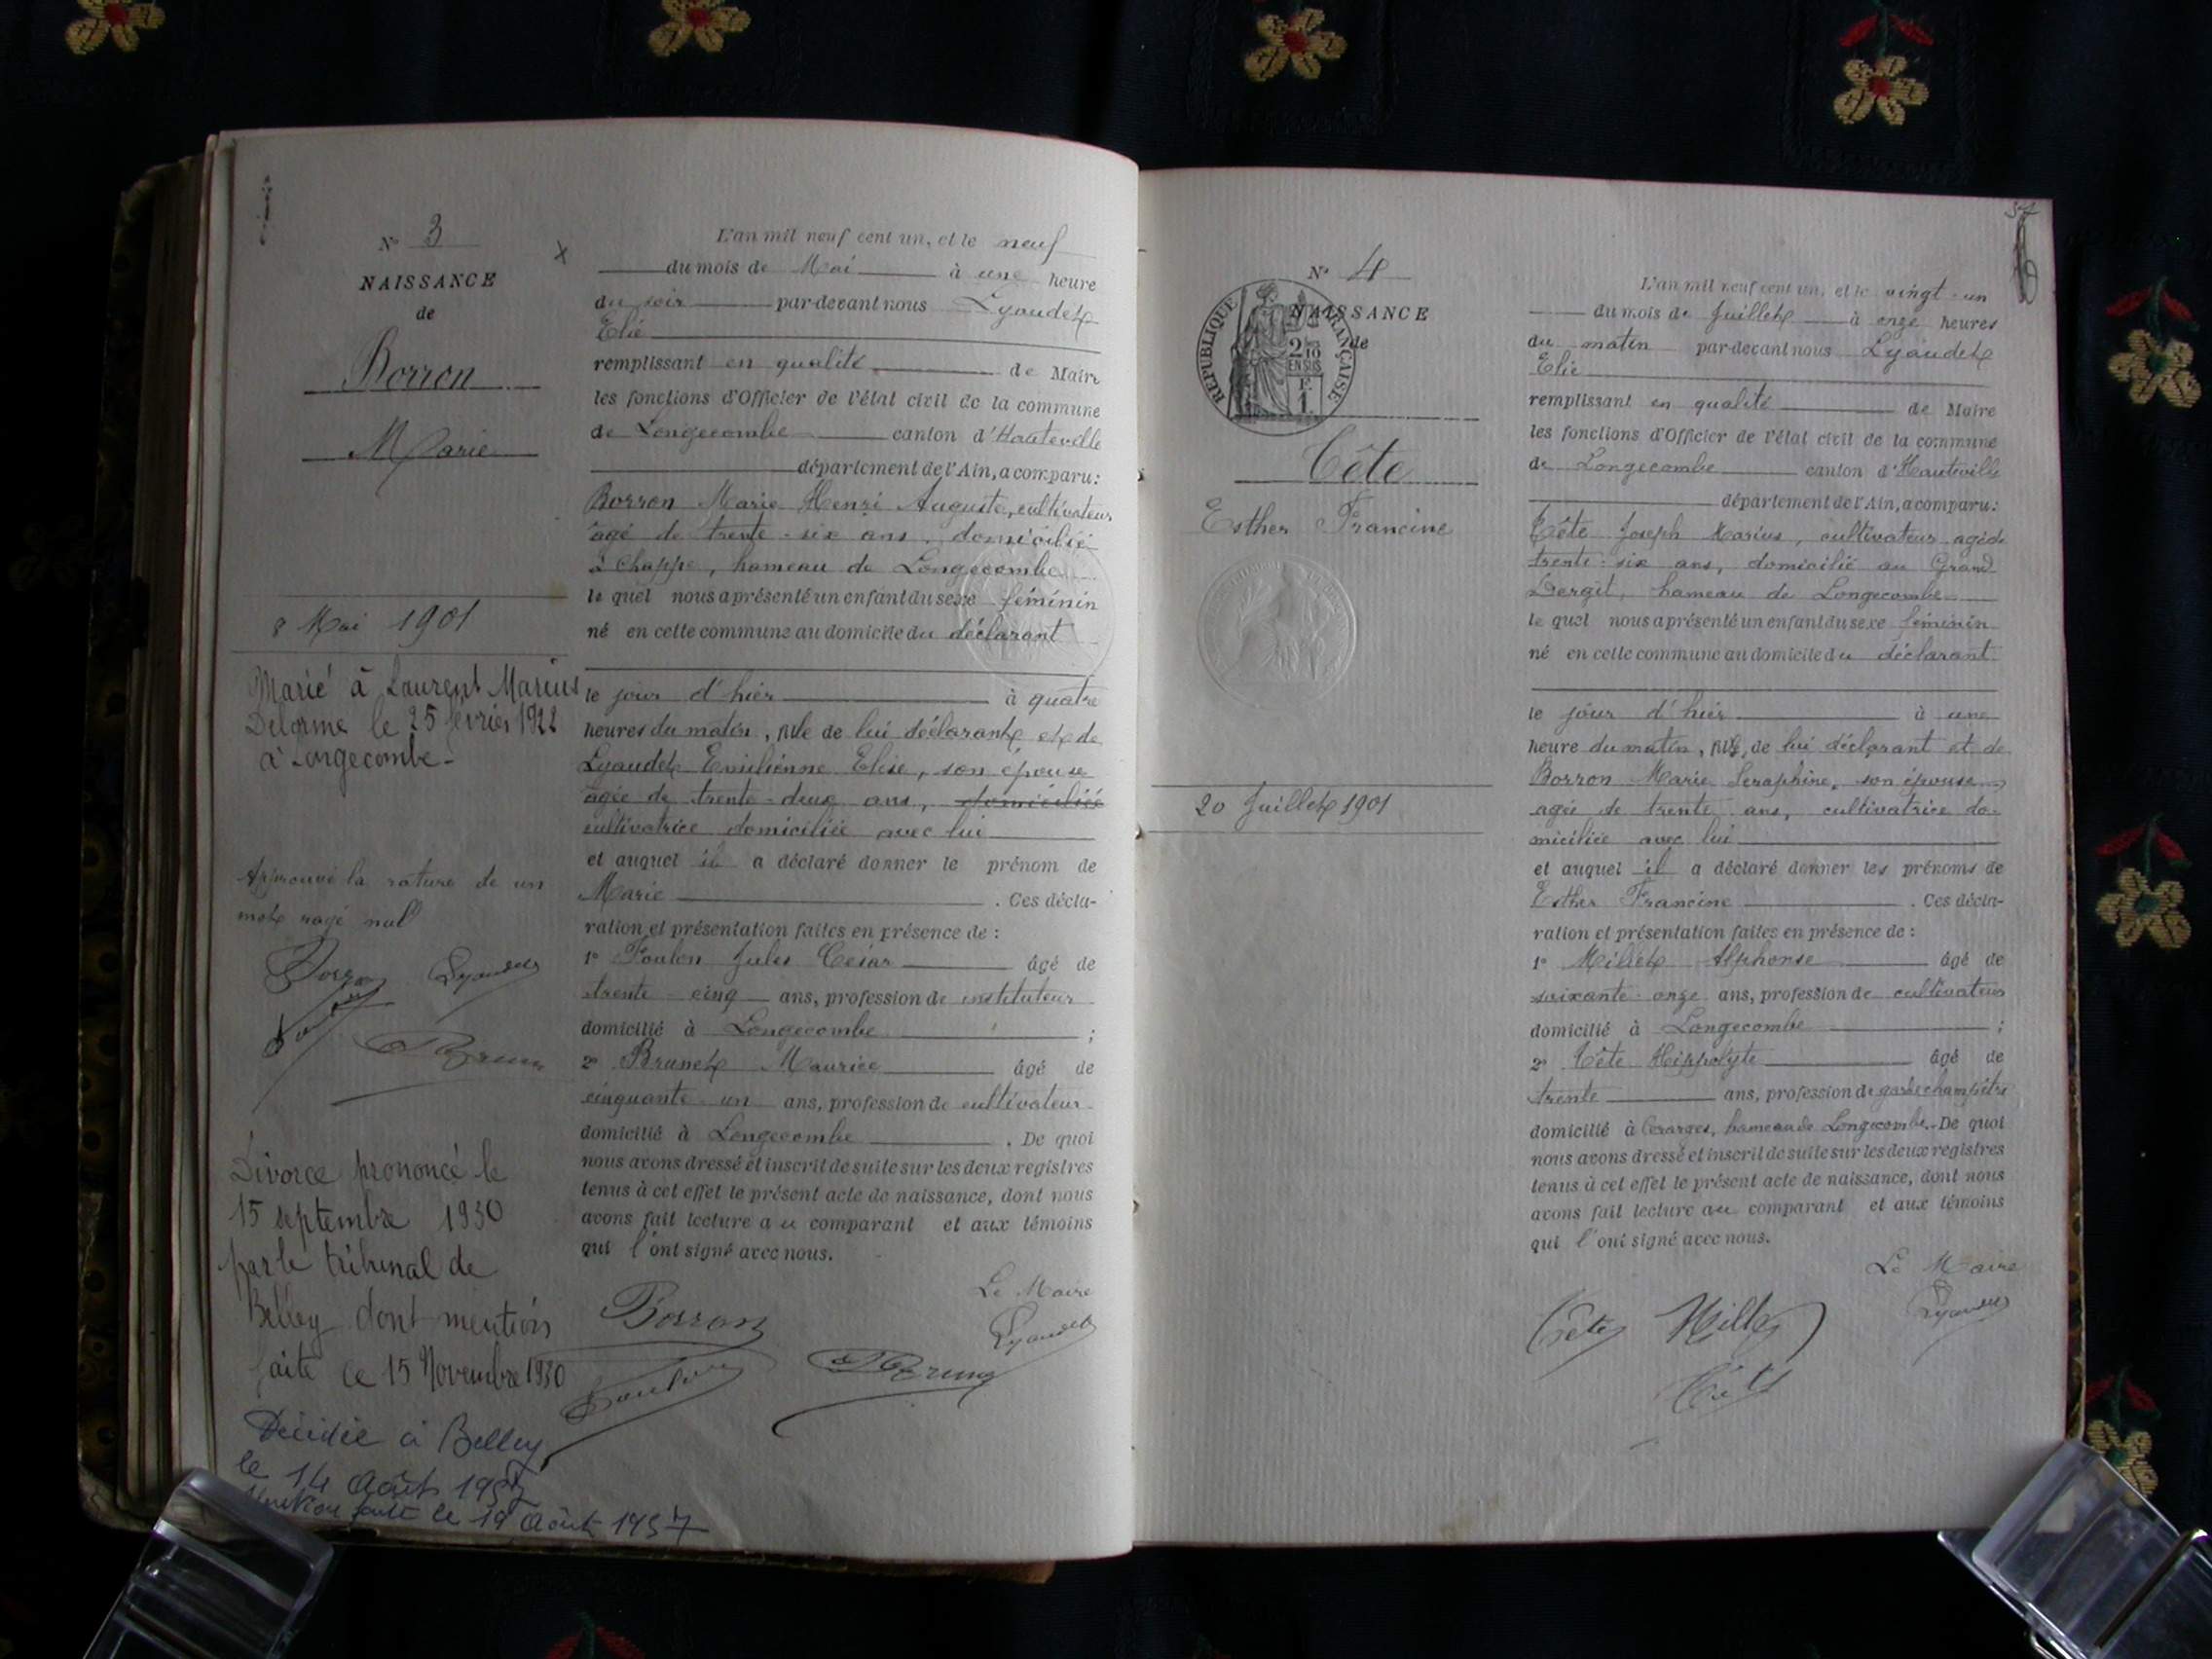 N° 3
NAISSANCE
de
Borron
Marie
8 Mai 1901
Marié à Laurent Marius
Delorme le 25 février 1922
à Longecombe -
Approuvé la rature de un
mot rayé nul
Borron Lyaudet
Brun
Divorce prononcé le
15 septembre 1930
par le tribunal de
Belley dont mention
faite le 15 Novembre 1930
Décédée à Belley
le 14 Août 1957
Mention faite le 19 Août 1957
L'an mil neuf cent un, et le neuf
du mois de Mai à une heure
du soir par-devant nous Lyaudet
Elie
remplissant en qualité de Maire
les fonctions d'Officier de l'état civil de la commune
de Longecombe canton d'Hauteville
département de l'Ain, a comparu:
Borron Marie Henri Auguste, cultivateur
âgé de trente-six ans, domicilié
à Chappe, hameau de Longecombe
le quel nous a présenté un enfant du sexe féminin
né en cette commune au domicile du déclarant
le jour d'hier à quatre
heures du matin, fille de lui déclarant et de
Lyaudet Emilienne Elise, son épouse
agée de trente-deux ans, domiciliée
cultivatrice domiciliée avec lui
et auquel il a déclaré donner le prénom de
Marie . Ces décla-
ration et présentation faites en présence de :
1° Foulon Jules César âgé de
trente-cinq ans, profession de instituteur
domicilié à Longecombe ;
2° Brunet Maurice âgé de
cinquante-un ans, profession de cultivateur
domicilié à Longecombe . De quoi
nous avons dressé et inscrit de suite sur les deux registres
tenus à cet effet le présent acte de naissance, dont nous
avons fait lecture au comparant et aux témoins
qui l'ont signé avec nous.
Le Maire
Borron Lyaudet
Foulon Brun
N° 4
NAISSANCE
de
RÉPUBLIQUE FRANÇAISE
2/10
EN SUS
1 F.
Tête
Esther Francine
20 Juillet 1901
37
L'an mil neuf cent un, et le vingt-un
du mois de Juillet à onze heures
du matin par-devant nous Lyaudet
Elie
remplissant en qualité de Maire
les fonctions d'Officier de l'état civil de la commune
de Longecombe canton d'Hauteville
département de l'Ain, a comparu:
Tête Joseph Marius, cultivateur agé de
trente-six ans, domicilié au Grand
Dergit, hameau de Longecombe
le quel nous a présenté un enfant du sexe féminin
né en cette commune au domicile du déclarant
le jour d'hier à une
heure du matin, fille, de lui déclarant et de
Borron Marie Séraphine, son épouse
agée de trente ans, cultivatrice do-
miciliée avec lui
et auquel il a déclaré donner les prénoms de
Esther Francine . Ces décla-
ration et présentation faites en présence de :
1° Milliet Alphonse âgé de
soixante-onze ans, profession de cultivateur
domicilié à Longecombe ;
2° Tête Hippolyte âgé de
trente ans, profession de garde champêtre
domicilié à hameau de Longecombe. De quoi
nous avons dressé et inscrit de suite sur les deux registres
tenus à cet effet le présent acte de naissance, dont nous
avons fait lecture au comparant et aux témoins
qui l'ont signé avec nous.
Le Maire
Tête Lyaudet
Tête